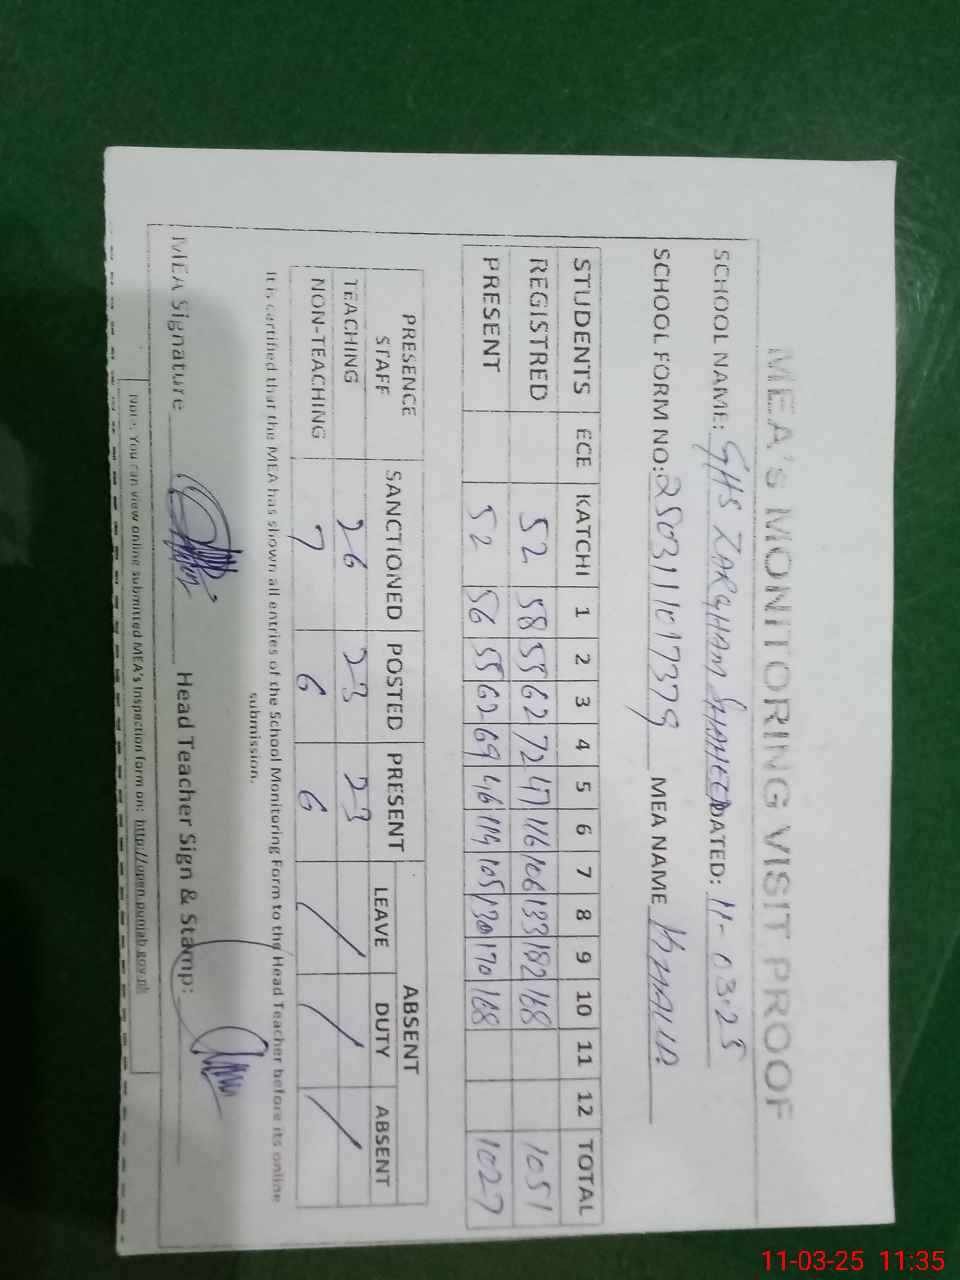 MEA's MONITORING VISIT PROOF
SCHOOL NAME: GHS ZARGHAM SHAHEED DATED: 11-03-25
SCHOOL FORM NO: MEA NAME
STUDENTS ECE KATCHI 1 2 3 4 5 6 7 8 9 10 11 12 TOTAL
REGISTRED 52 58 55 62 72 47 116 106 133 182 168 1051
PRESENT 52 56 55 62 69 46 114 105 130 170 168 1027
PRESENCE STAFF SANCTIONED POSTED PRESENT ABSENT
LEAVE DUTY ABSENT
TEACHING 26 23 23 / / /
NON-TEACHING 7 6 6
It is certified that the MEA has shown all entries of the School Monitoring Form to the Head Teacher before its online
submission.
MEA Signature Head Teacher Sign & Stamp:
Note: You can view online submitted MEA's Inspection form on: http://open.punjab.gov.pk
11-03-25 11:35